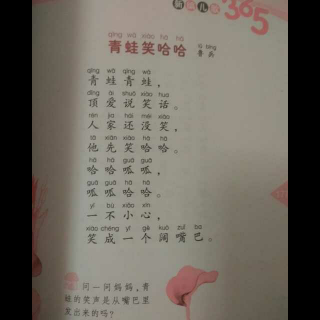 新 儿 365
qīng wā xiào hā hā
青蛙笑哈哈
lǔ bīng
鲁兵
qīng wā qīng wā
青蛙青蛙，
dǐng ài shuō xiào huà
顶爱说笑话。
rén jiā hái méi xiào
人家还没笑，
tā xiān xiào hā hā
他先笑哈哈。
hā hā guā guā
哈哈呱呱，
guā guā hā hā
呱呱哈哈。
yí bù xiǎo xīn
一不小心，
xiào chéng yí gè kuò zuǐ ba
笑成一个阔嘴巴。
问一问妈妈，青
蛙的笑声是从嘴巴里
发出来的吗？